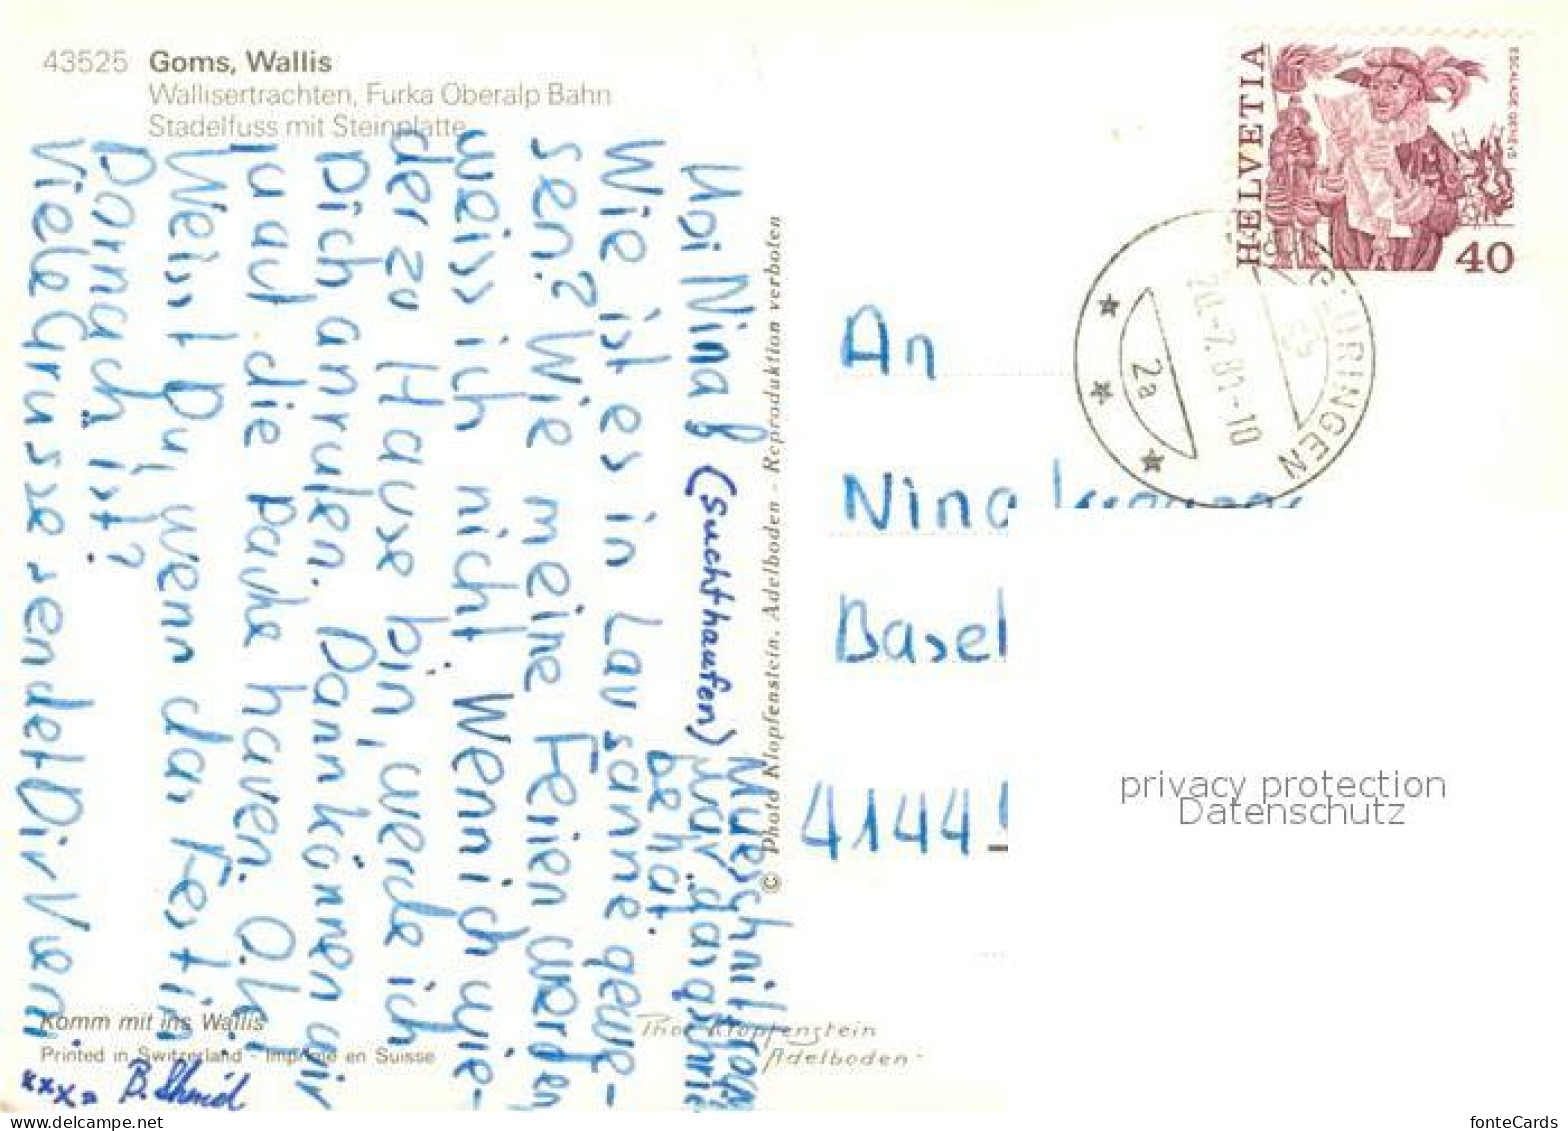 43525 Goms, Wallis
Wallisertrachten, Furka Oberalp Bahn
Stadelfuss mit Steinplatte
Hoi Nina (suchthaufen)
Wie ist es in Lausanne gewe-
sen? Wie meine Ferien werden
weiss ich nicht. Wenn ich wie-
der zu Hause bin, werde ich
Dich anrufen. Dann können wir
ja auf die pauke hauen.
Weisst Du, wenn das Fest in
Dornach ist?
Viele Grüsse sendet Dir Vern
xxxx B. Schmid
Komm mit ins Wallis
Printed in Switzerland - Imprimé en Suisse
© Photo Klopfenstein, Adelboden - Reproduktion verboten
Phot Klopfenstein
Adelboden
HELVETIA
ESCALADE GENÈVE
40
2a
An
Nina
Basel
4144
privacy protection
Datenschutz
www.delcampe.net
fonteCards